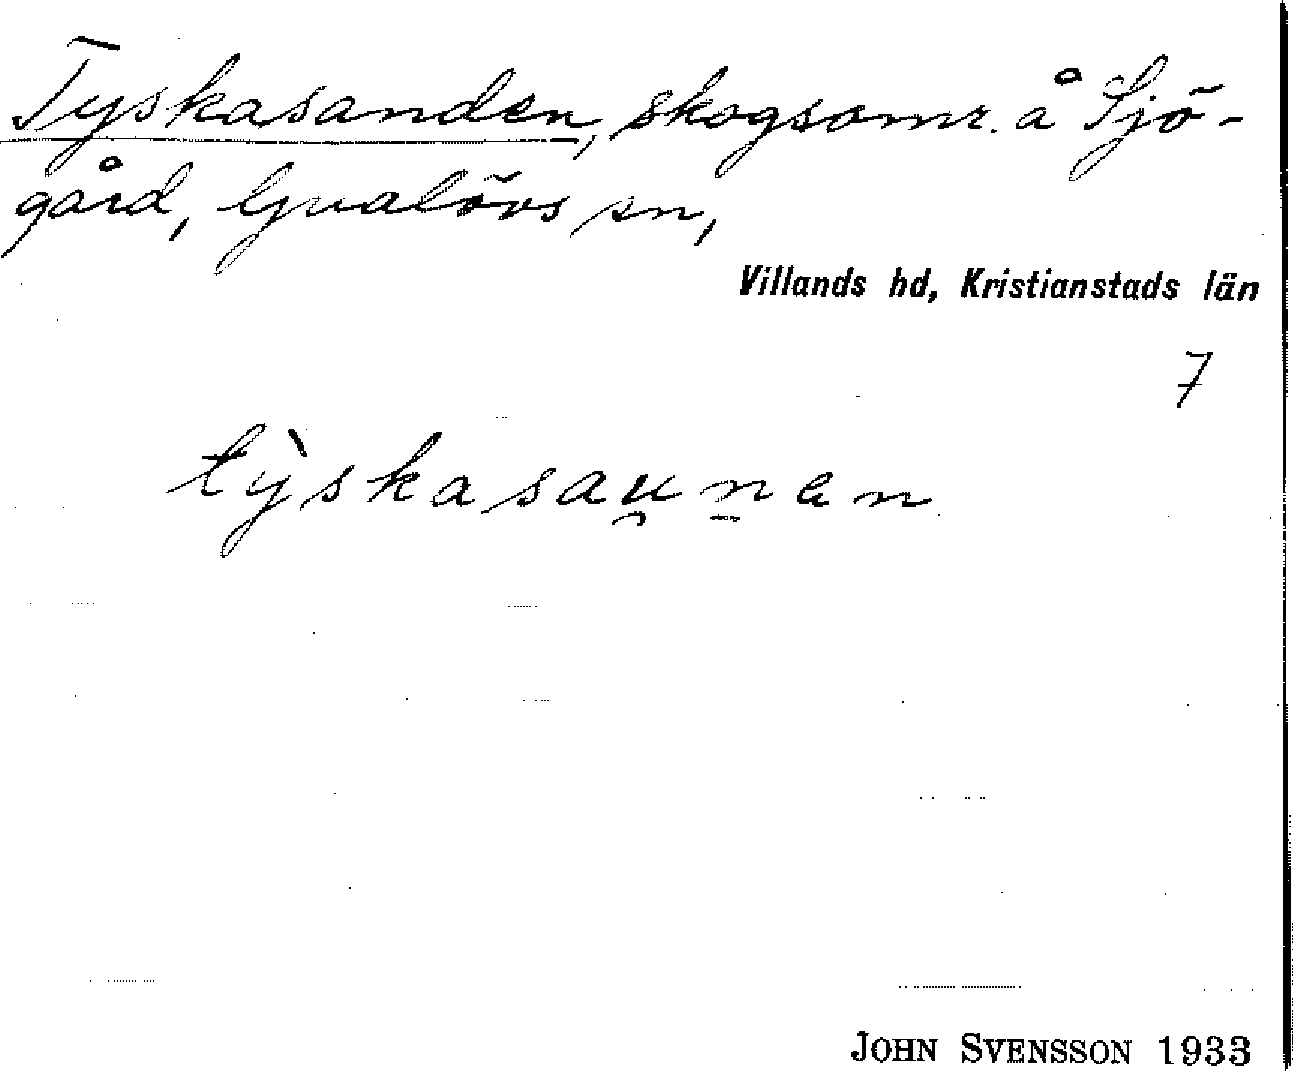 Tyskasanden, skogsomr. å Sjö-
gård, Gualövs sn,
Villands hd, Kristianstads län
7
tỳskasau̯n̲en
JOHN SVENSSON 1933